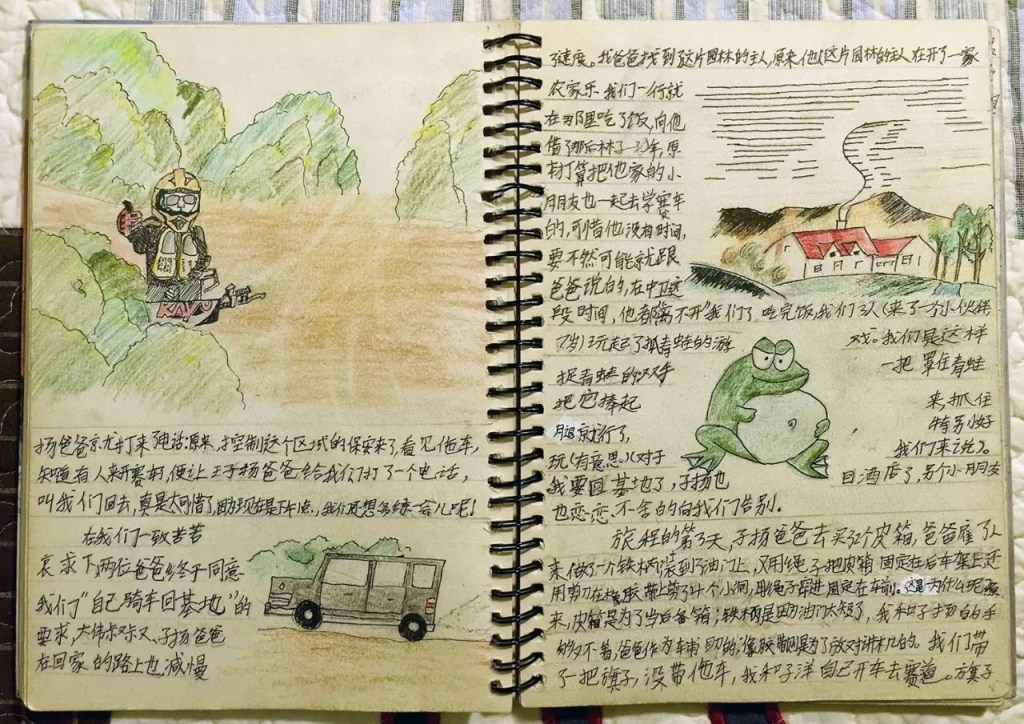 KAY
扬爸爸就打来了电话:原来,控制这个区域的保安来了,看见他车,
知道有人来开赛车,便让王子扬爸爸给我们打了一个电话,
叫我们回去,真是太可惜了,我们还想多练一会儿呢!
在我们一致苦苦
哀求下,两位爸爸终于同意
我们"自己骑车回基地"的
要求,大伟叔叔又、子扬爸爸
在回家的路上也减慢
了速度。我爸爸找到了这片园林的主人,原来他(这片园林的主人在开了一家
农家乐 我们一行就
在那里吃了饭,向他
借了那后林了一年,原
本打算把他家的小
朋友也一起去学赛车
的,可惜他没有时间,
要不然可能就跟
爸爸说的,在中卫这
段时间,他都"离不开"我们了 吃完饭,我们3人(来了一个小伙伴
7岁)玩起了抓青蛙的游
戏。我们是这样
捉青蛙的:双手
一把 罩住青蛙
把它捧起
来,抓住
腿就行了,
特别好
玩(有意思)(对于
我们来说。
我要回基地了,子扬也
回酒店了,另个小朋友
也恋恋不舍的向我们告别。
旅程的第3天,子扬爸爸去买2个皮箱,爸爸雇了人
来,做了一个铁柄装到了油门上,又用绳子把皮箱固定在后车架上,还
用剪刀在橡胶带上剪了4个小洞,取绳子穿进固定在车前。这是为什么呢
来,皮箱是为了当后备箱;铁柄是因为油门太短了,我和子扬的手
够不着,爸爸作为车辅助的,橡胶带则是为了放对讲机的。我们带
了一把旗子,没带他车,我和子洋自己开车去赛道。旗子